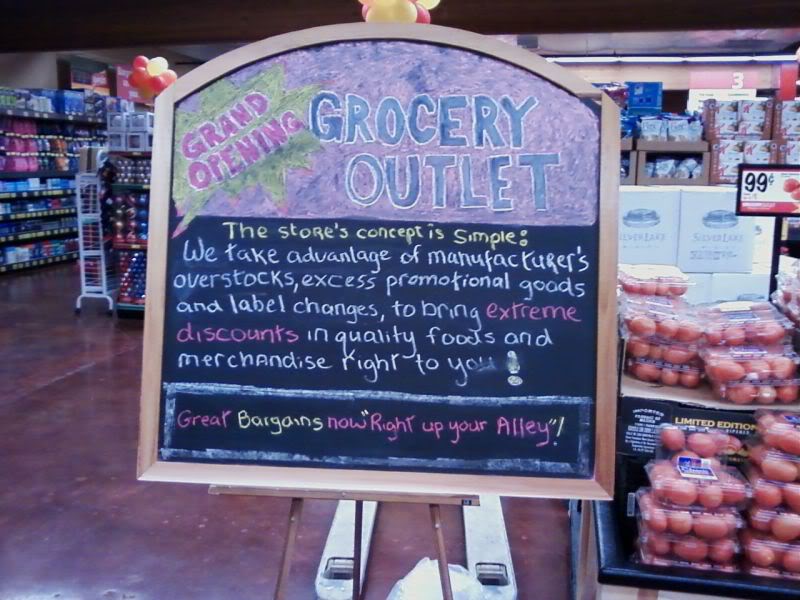 GRAND
OPENING
GROCERY
OUTLET
The store's concept is Simple:
We take advantage of manufacturer's
overstocks, excess promotional goods
and label changes, to bring extreme
discounts in quality foods and
merchandise right to you!
Great Bargains now "Right up your Alley"!
3
99¢
SILVER LAKE
SILVER LAKE
IMPORTED
LIMITED EDITION